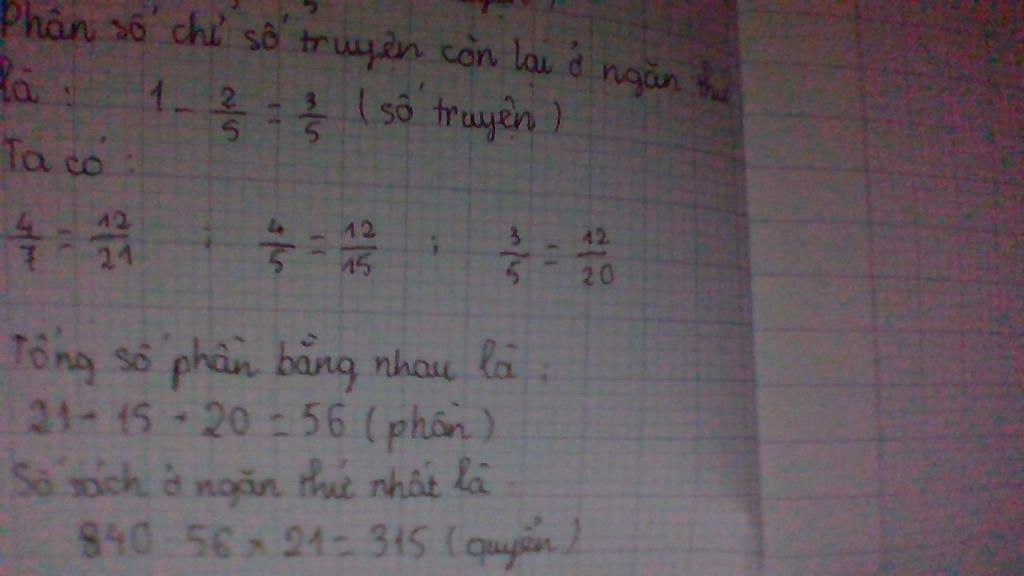 Phân số chỉ số truyện còn lại ở ngăn thứ
là : 1 - 2/5 = 3/5 (số truyện)
Ta có :
4/7 = 12/21 ; 4/5 = 12/15 ; 3/5 = 12/20
Tổng số phần bằng nhau là :
21 + 15 + 20 = 56 (phần)
Số sách ở ngăn thứ nhất là :
840 : 56 x 21 = 315 (quyển)